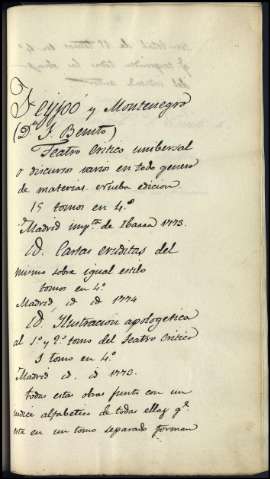 Feyjoo y Montenegro
(Dn. F. Benito)
Teatro Critico unibersal
o discursos varios en todo genero
de materias. nueba edicion
15 tomos en 4.º
Madrid impta. de Ibarra 1773.
id. Cartas eruditas del
mismo sobre igual estilo
tomos en 4.º
Madrid, id. id. 1774
id. Ilustracion apologetica
al 1.º y 2.º tomo del Teatro Critico
1 tomo en 4.º
Madrid id. id. 1770.
todas estas obras junto con un
indice alfabetico de todas ellas qe.
esta en un tomo separado forman